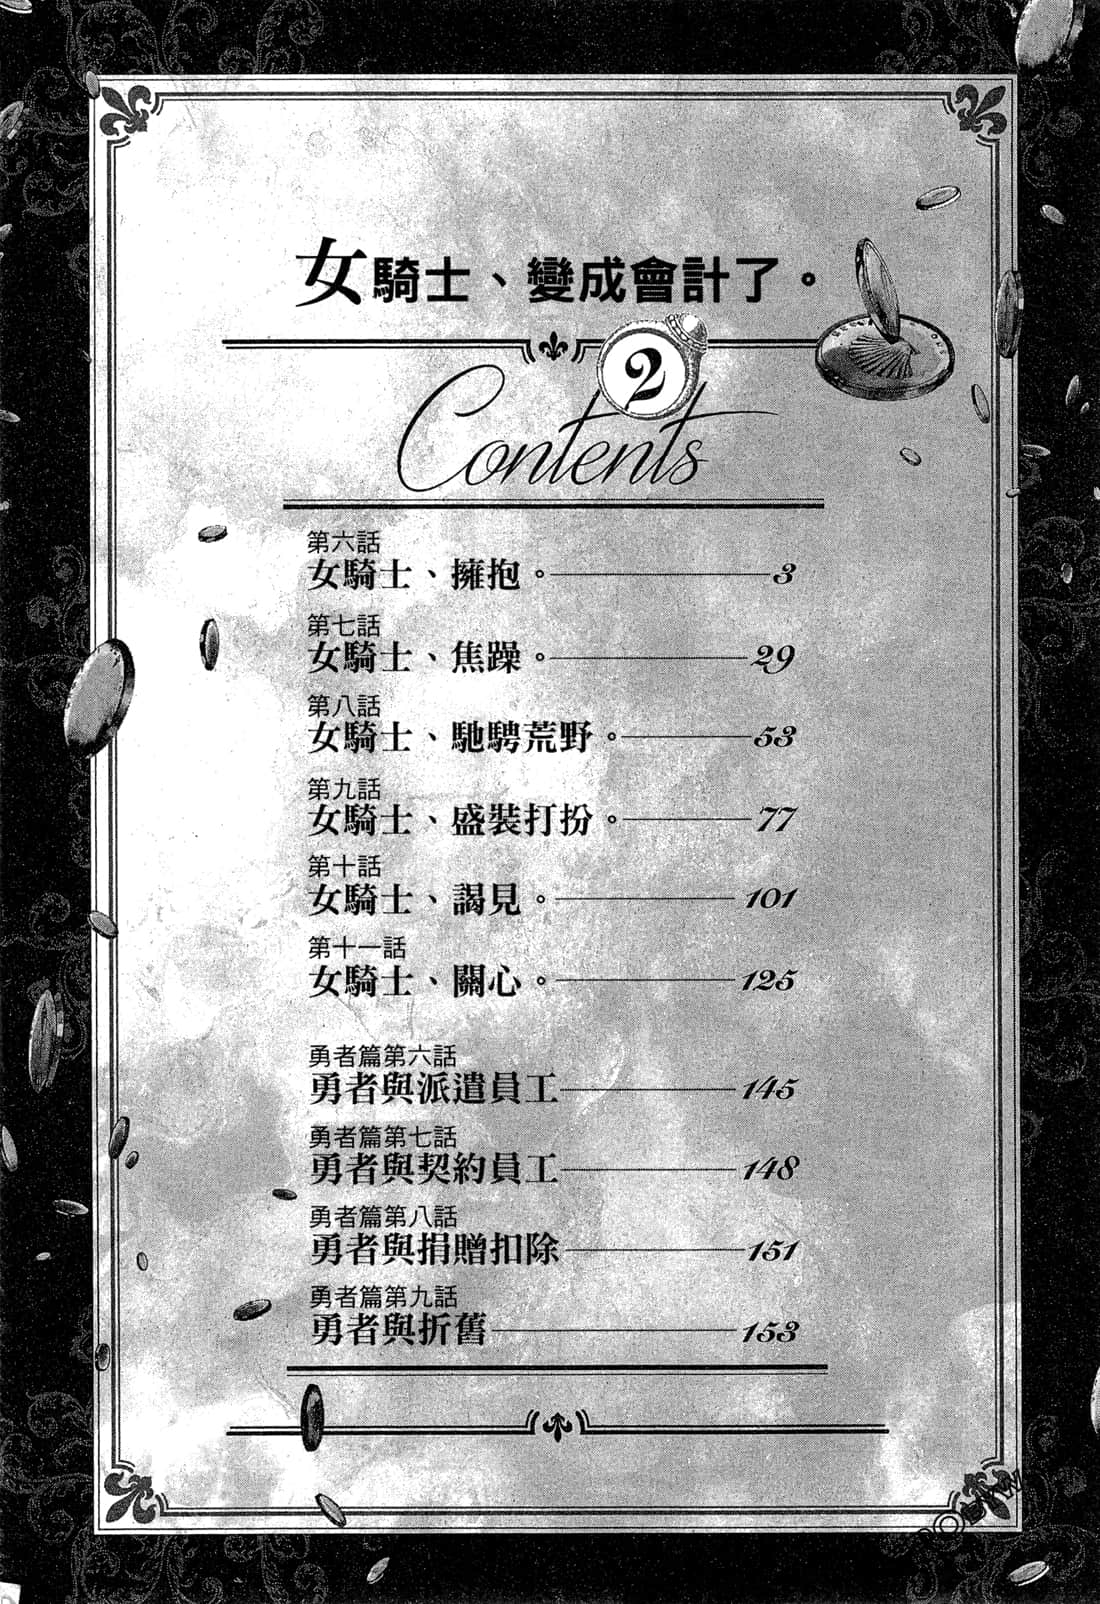 女騎士、變成會計了。
2
Contents
第六話
女騎士、擁抱。 3
第七話
女騎士、焦躁。 29
第八話
女騎士、馳騁荒野。 53
第九話
女騎士、盛裝打扮。 77
第十話
女騎士、謁見。 101
第十一話
女騎士、關心。 125
勇者篇第六話
勇者與派遣員工 145
勇者篇第七話
勇者與契約員工 148
勇者篇第八話
勇者與捐贈扣除 151
勇者篇第九話
勇者與折舊 153